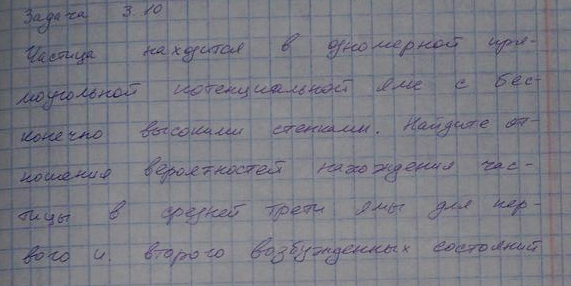 Задача 3.10
Частица находится в одномерной пря-
моугольной потенциальной яме с бес-
конечно высокими стенками. Найдите от-
ношения вероятностей нахождения час-
тицы в средней трети ямы для пер-
вого и. второго возбужденных состояний